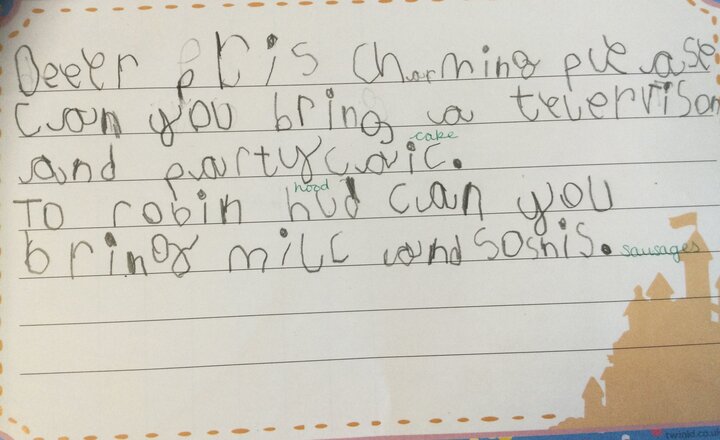 Deeer pris Charming please
Can you bring a telervison
cake
and partycaic.
hood
To robin hud can you
bring milc and soshis. sausages
twinkl.co.uk